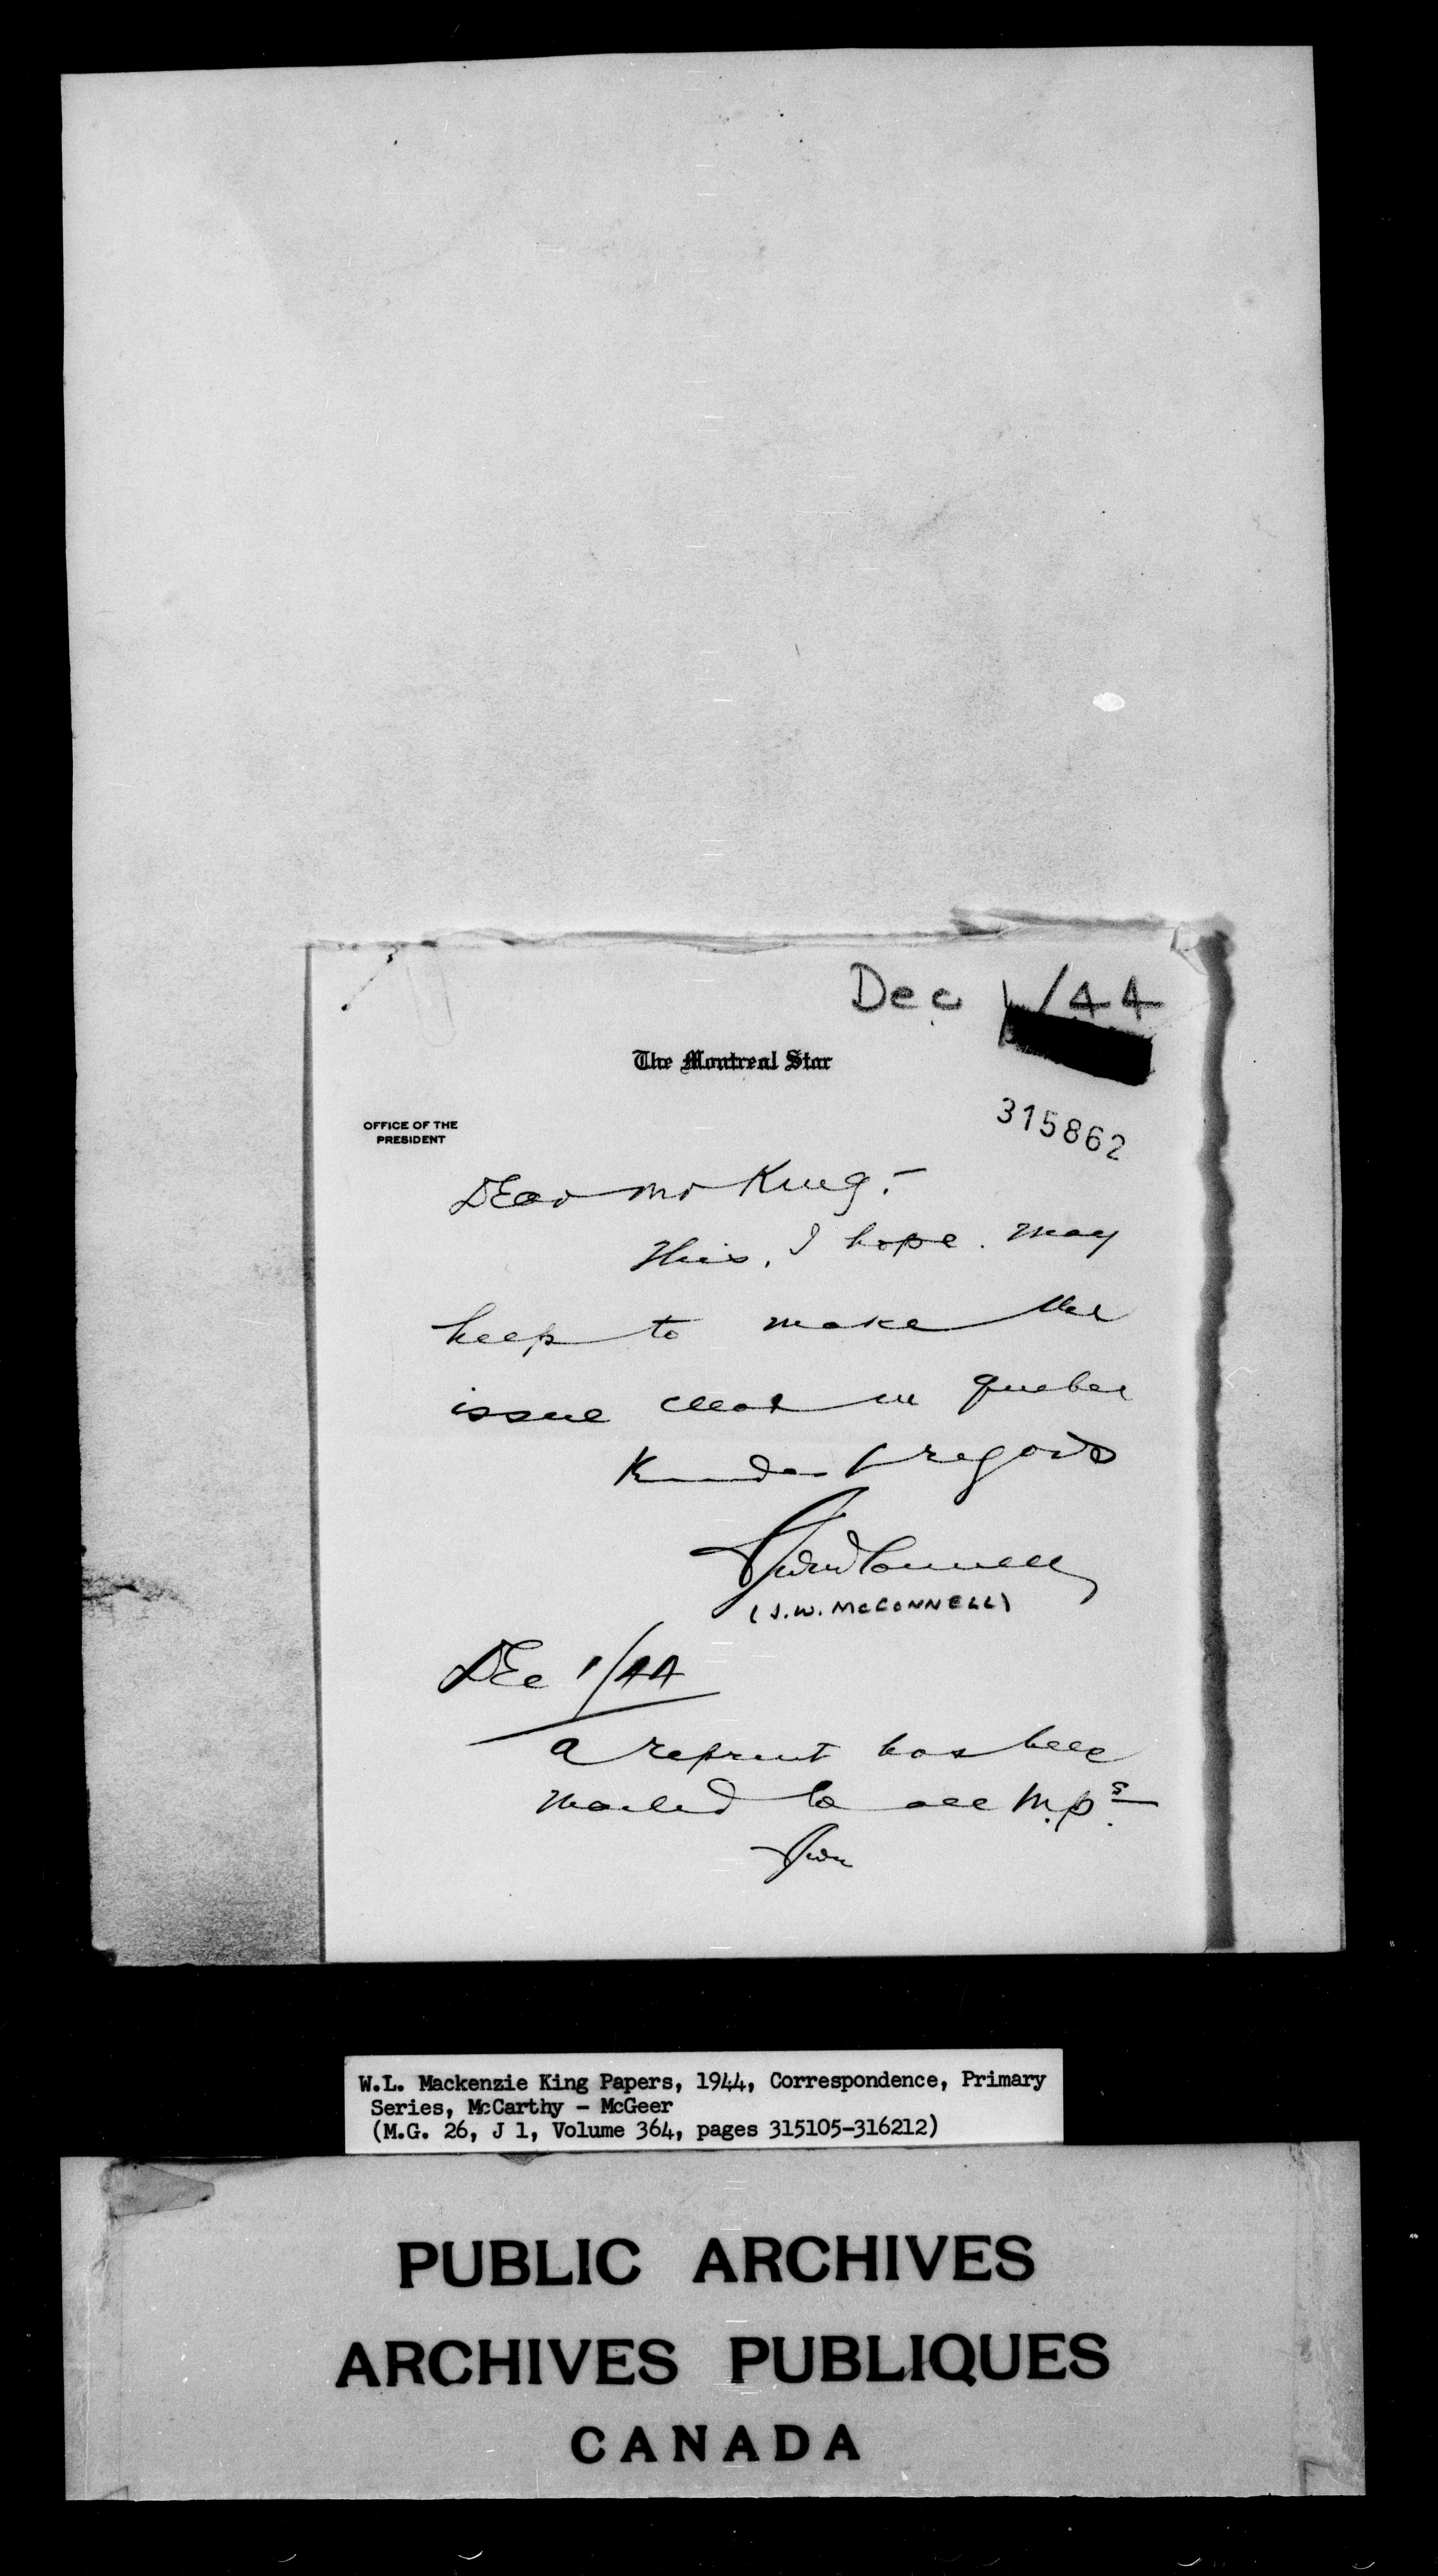 Dec 1/44
The Montreal Star
315862
OFFICE OF THE
PRESIDENT
Dear Mr King:-
This, I hope. may
help to make the
issue clear in Quebec
Kindest regards
JWMcConnell
(J.W. McCONNELL)
Dec 1/44
a reprint has been
mailed to all M.P.s
JWM
W.L. Mackenzie King Papers, 1944, Correspondence, Primary
Series, McCarthy - McGeer
(M.G. 26, J 1, Volume 364, pages 315105-316212)
PUBLIC ARCHIVES
ARCHIVES PUBLIQUES
CANADA